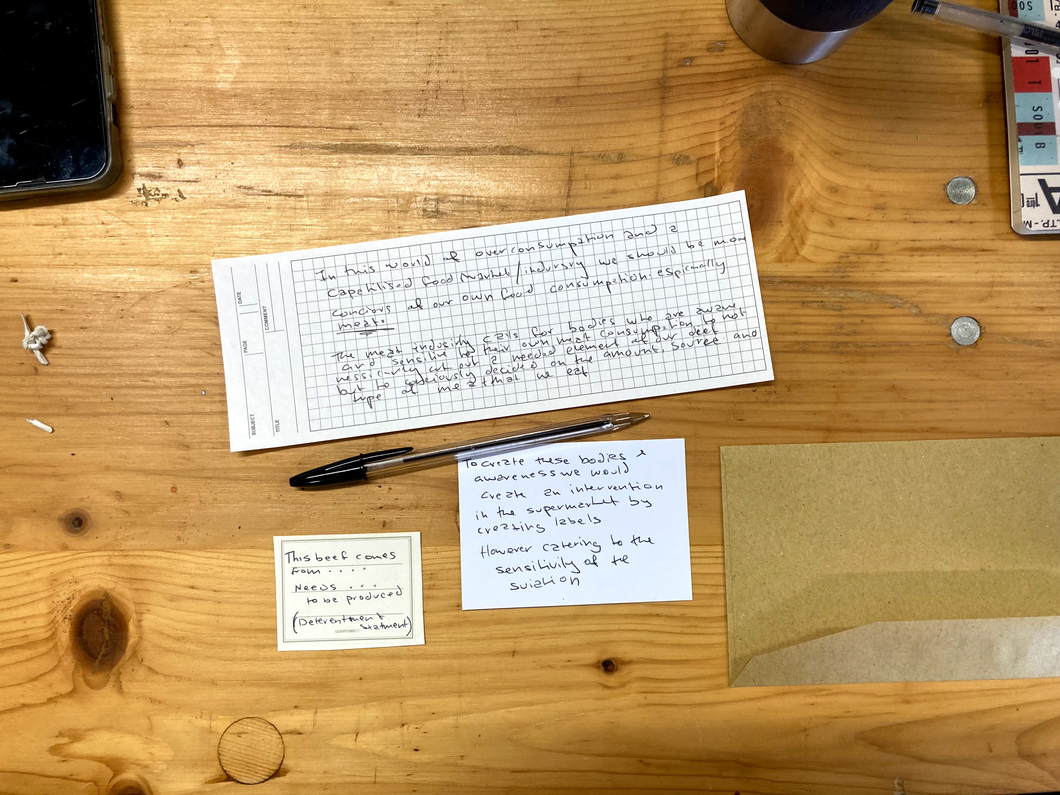 In this world of overconsumpation and a
capatilised food market/industry we should be more
concious of our own food consumption espicnally
meat.
The meat industry calls for bodies who are aware
and sensitive to their own meat consumption to not
nessicarly cut out a needed element of our deet
but to conciously decided on the amount, source and
type of meat that we eat
SUBJECT PAGE DATE
TITLE COMMENT
To create these bodies &
awareness we would
create an intervention
in the supermarket by
creating labels
However catering to the
sensitivity of the
This beef comes
from ....
Needs ...
to be produced
(Deterentment
statment)
SOUT
SOU B
A
LTP.-M